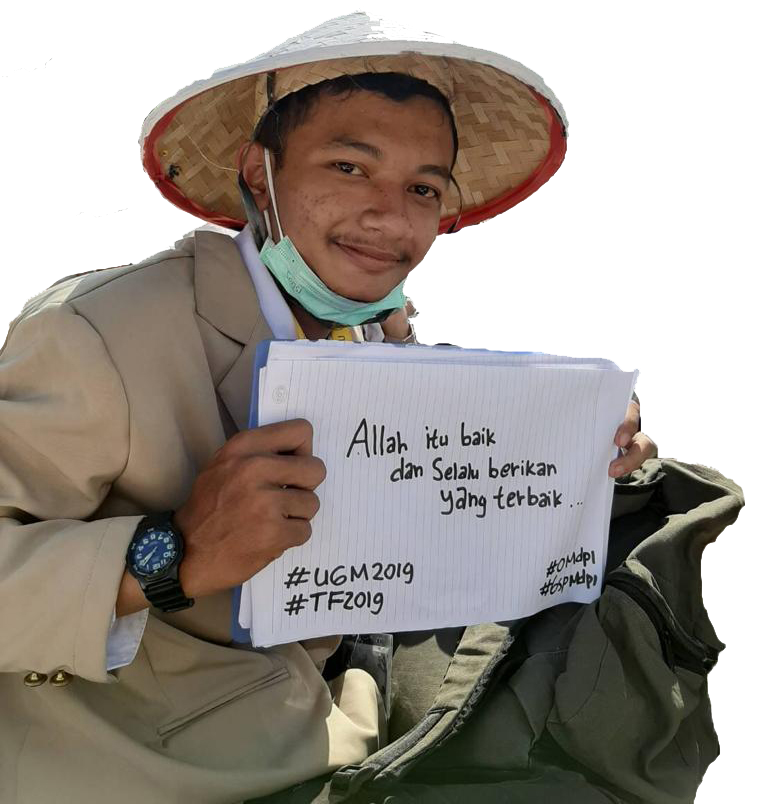 Allah itu baik
dan Selalu berikan
yang terbaik...
#UGM2019
#TF2019
#0Mdpl